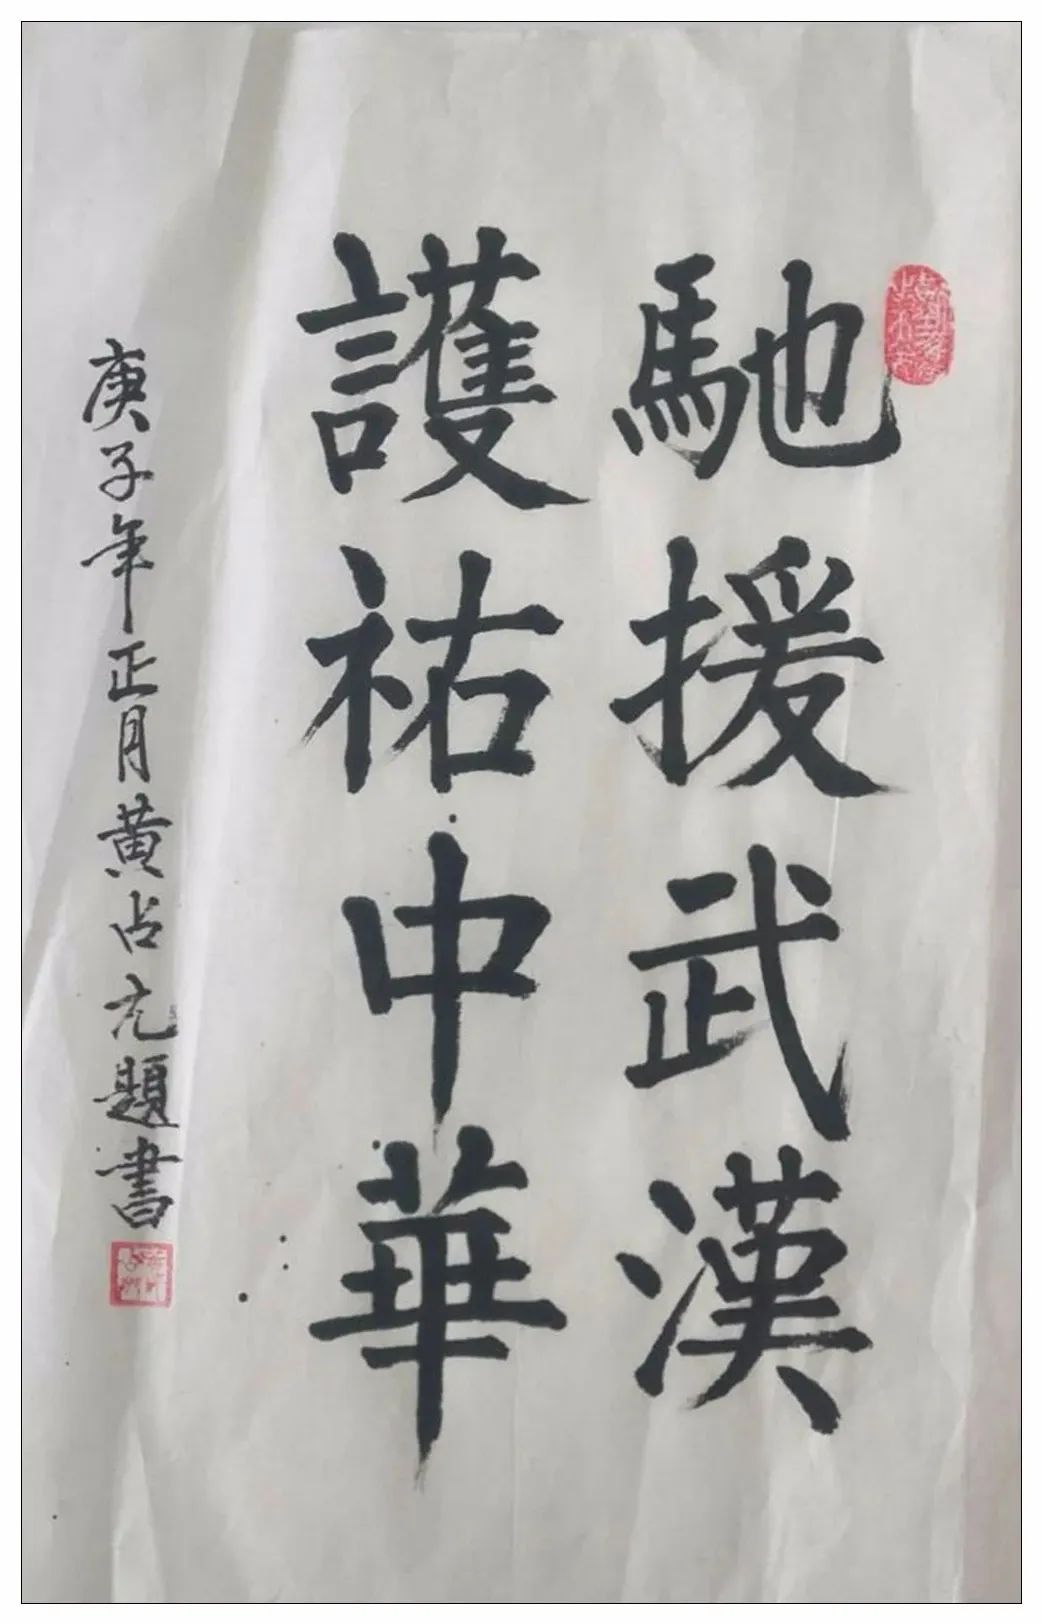 馳援武漢
護祐中華
庚子年正月黃占元題書